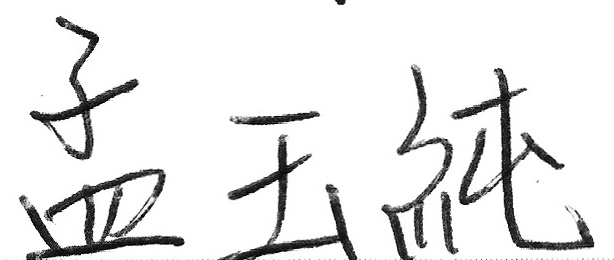 孟玉純